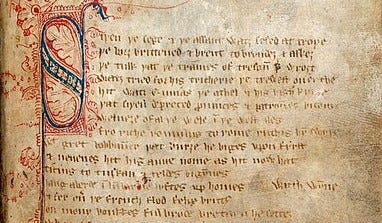 SIþen þe sege & þe assaut watz sesed at troye
þe borȝ brittened & brent to brondeȝ & askez
þe tulk þat þe trammes of tresoun þer wroȝt
watz tried for his tricherie þe trewest on erthe
hit watz ennias þe athel & his highe kynde
þat siþen depreced prouinces & patrounes bicome
welneȝe of al þe wele in þe west iles
fro riche romulus to rome ricchis hym swyþe
gret bobbaunce þat burȝe he biges vpon fyrst
& neuenes hit his aune nome as hit now hat
ticius to tuskan teldes bigynnes
langaberde in lumbardie lyftes vp homes with wynne
fer ouer þe french flod felix brutus
on mony bonkkes ful brode bretayn he settez